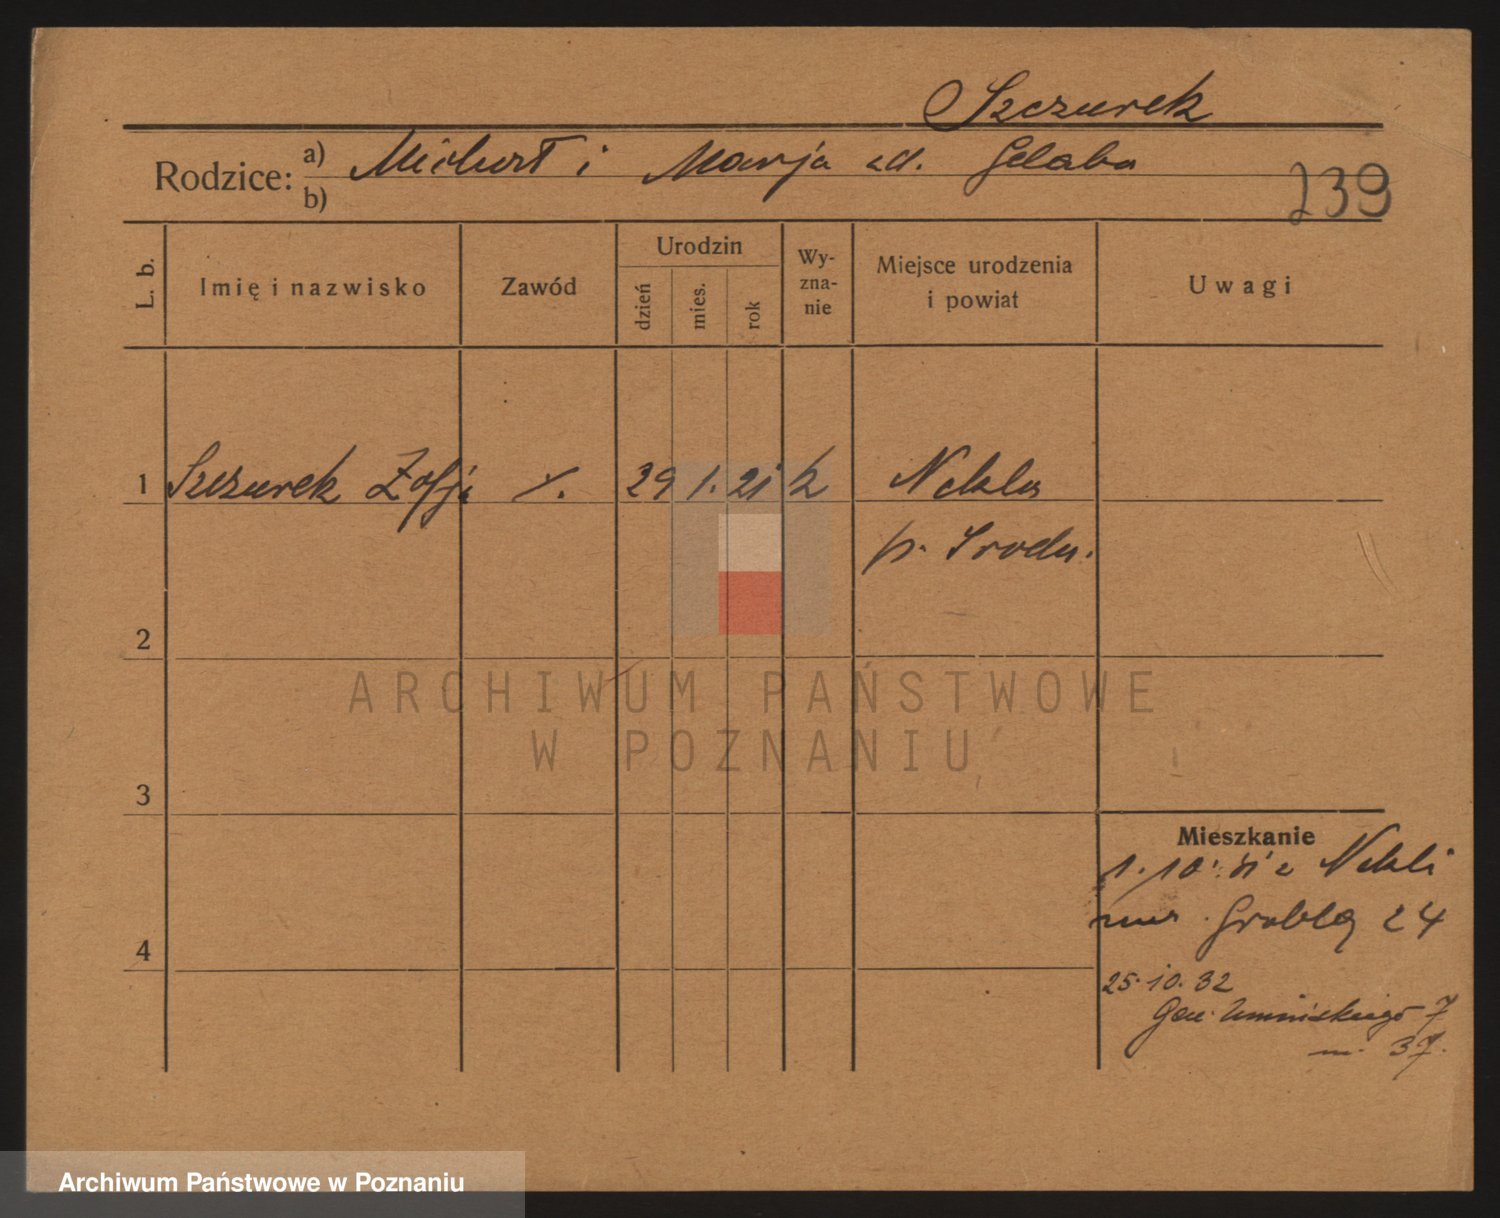 Szczurek
Rodzice: a) Michał i Marja zd. Gelaba
b)
239
L. b. Imię i nazwisko Zawód Urodzin dzień mies. rok Wyzna-nie Miejsce urodzenia i powiat Uwagi
1 Szczurek Zofja 29 1. 21 k Nekla
p. Sroda.
2
ARCHIWUM PAŃSTWOWE
W POZNANIU
3
Mieszkanie
1.10. 31 z Nekli
Grobla 24
4
25.10.32
Gen. Umińskiego 7
m. 37.
Archiwum Państwowe w Poznaniu